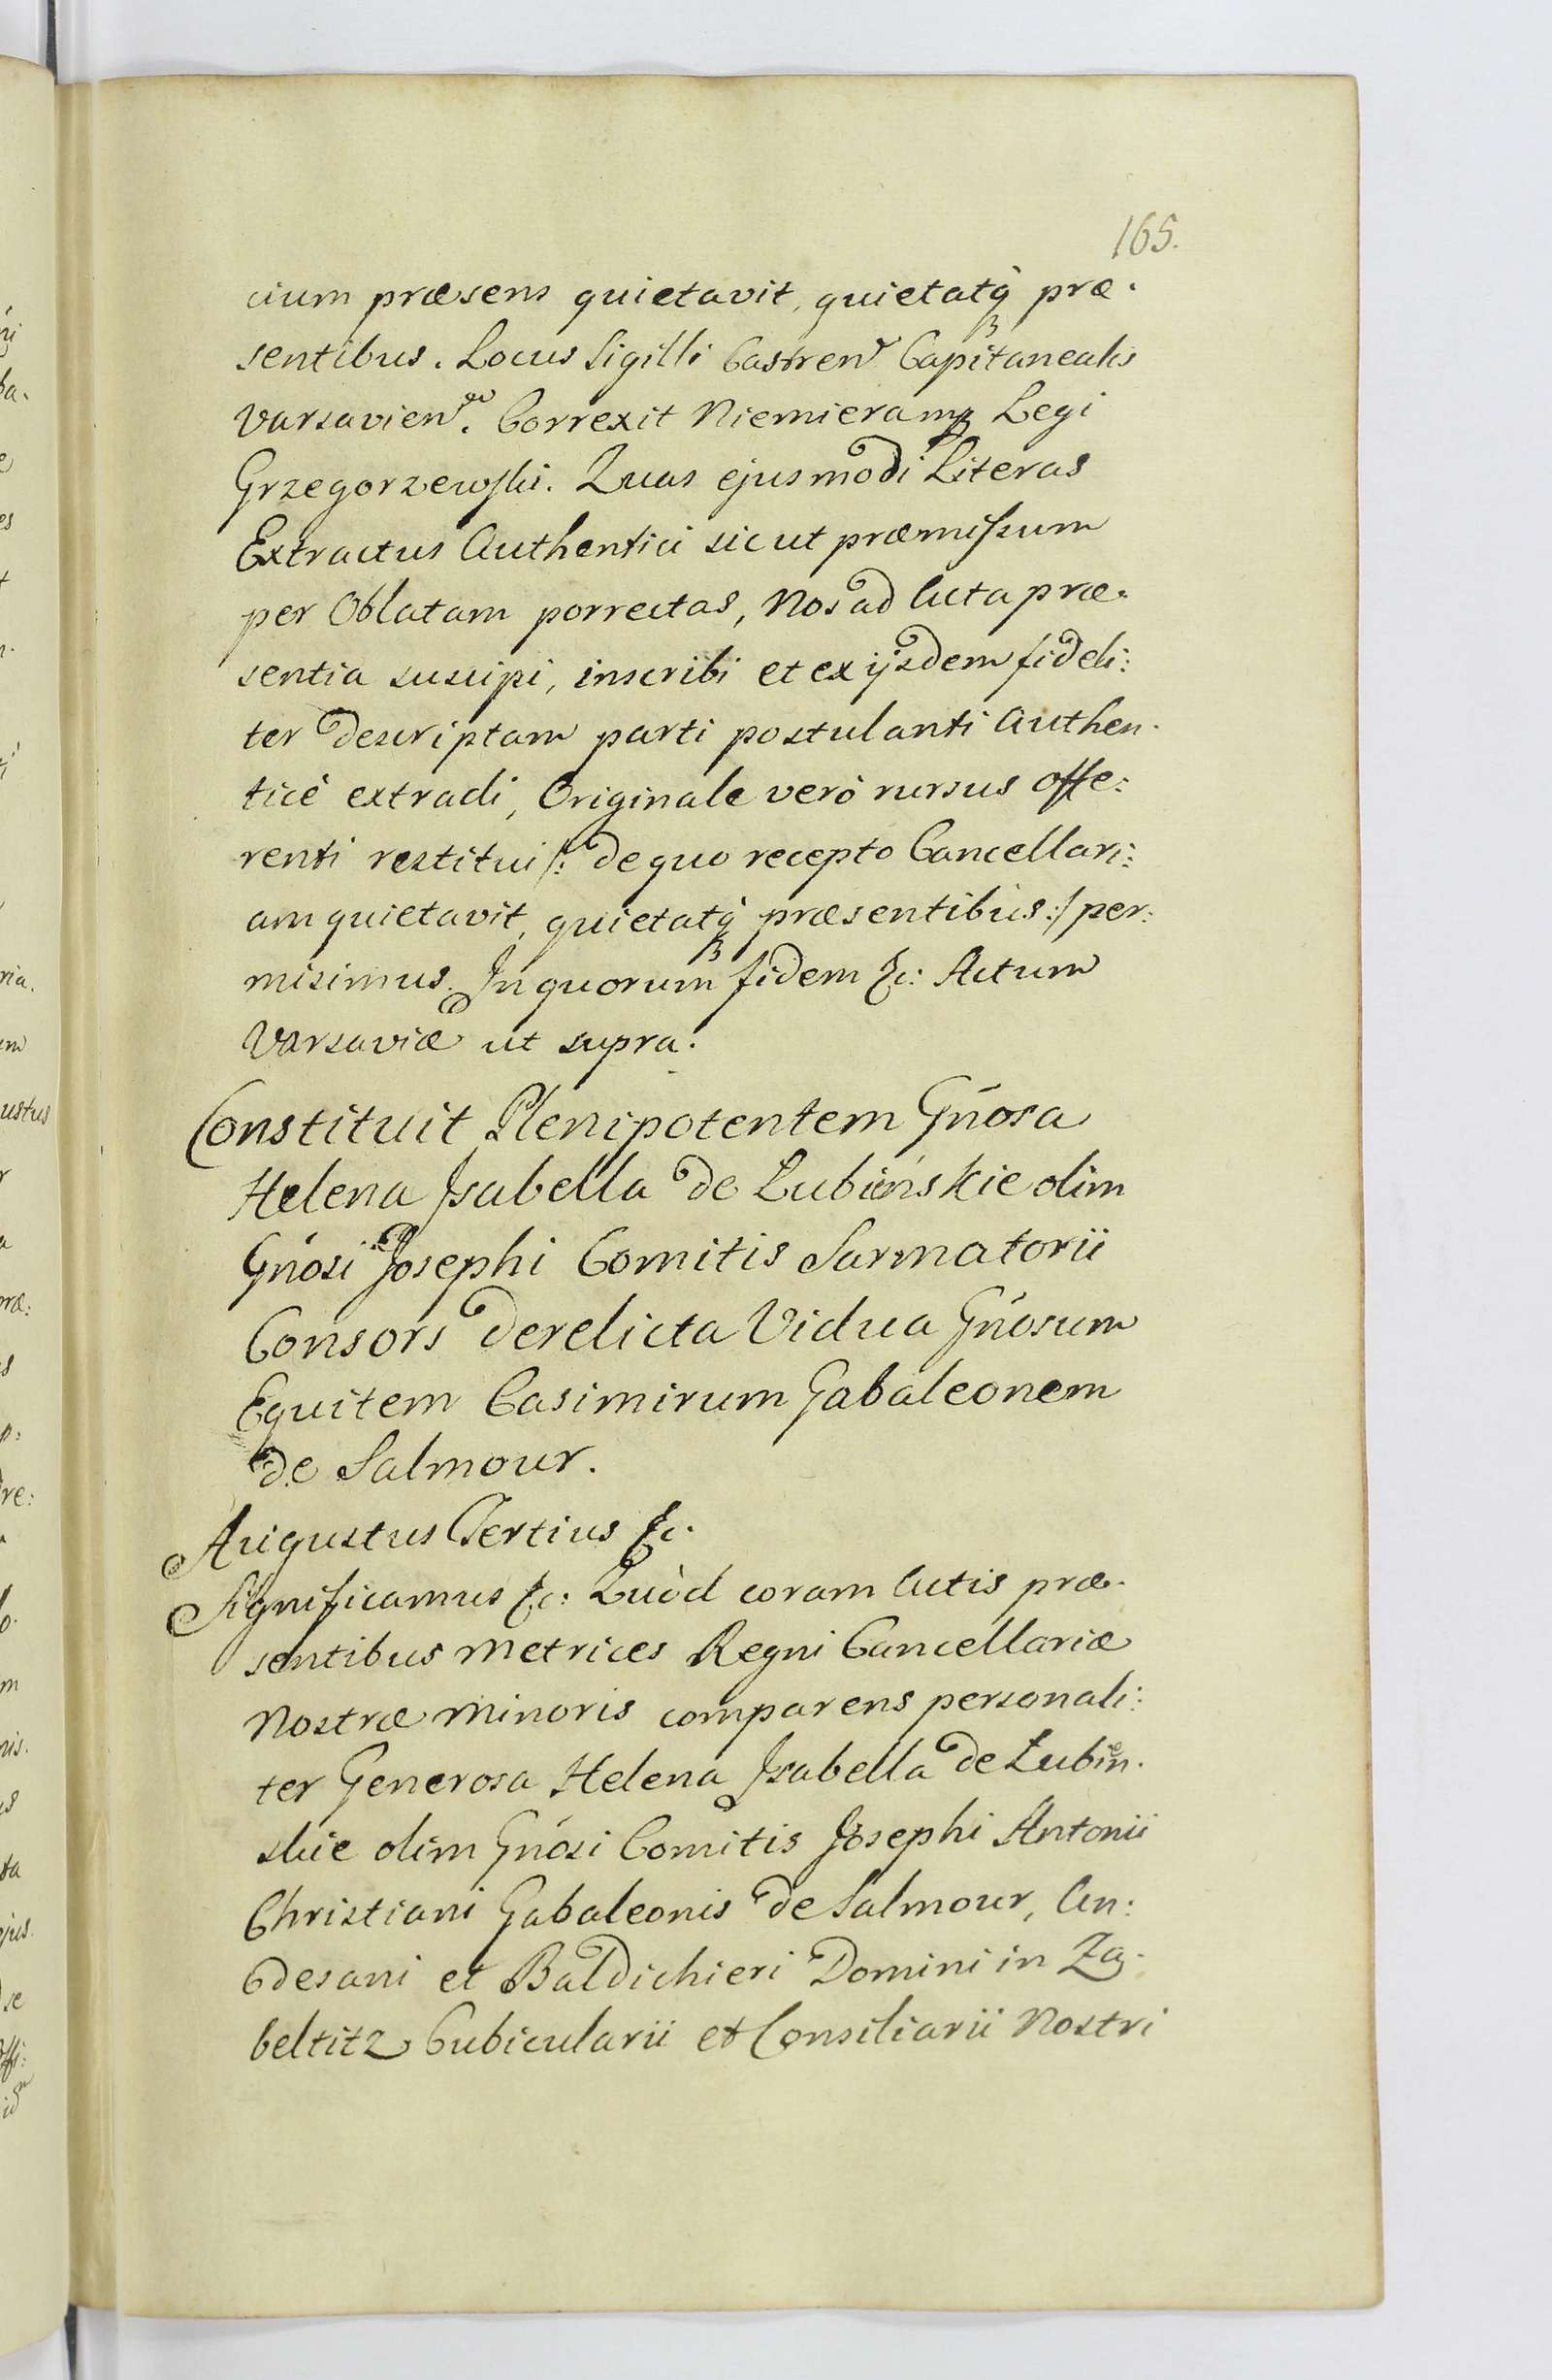 165.
cium præsens quietavit, quietatq̀ præ.
sentibus. Locus Sigilli Castren Capitanealis
Varsavien. Correxit Niemiera mp Legi
Grzegorzewski. Quas ejusmodi Literas
Extractus Authentici sicut præmissum
per Oblatam porrectas, Nos ad Acta præ.
sentia suscipi, inscribi et ex ijsdem fideli:
ter descriptam parti postulanti Authen.
ticè extradi, Originale verò rursus offe:
renti restitui /: de quo recepto Cancellari:
am quietavit, quietatq̀ præsentibus :/ per:
misimus. In quorum fidem &c: Actum
Varsaviæ ut supra.
Constituit Plenipotentem Gnosa
Helena Isabella de Łubieńskie olim
Gnosi Josephi Comitis Sarmatorii
Consors derelicta Vidua Gnosum
Equitem Casimirum Gabaleonem
de Salmour.
Augustus Tertius &c.
Significamus &c: Quòd coram Actis præ.
sentibus Metrices Regni Cancellariæ
Nostræ Minoris comparens personali:
ter Generosa Helena Isabella de Łubien.
skie olim Gnosi Comitis Josephi Antonii
Christiani Gabaleonis de Salmour, An:
desani et Baldichieri Domini in Za.
beltitz Cubicularii et Consiliarii Nostri